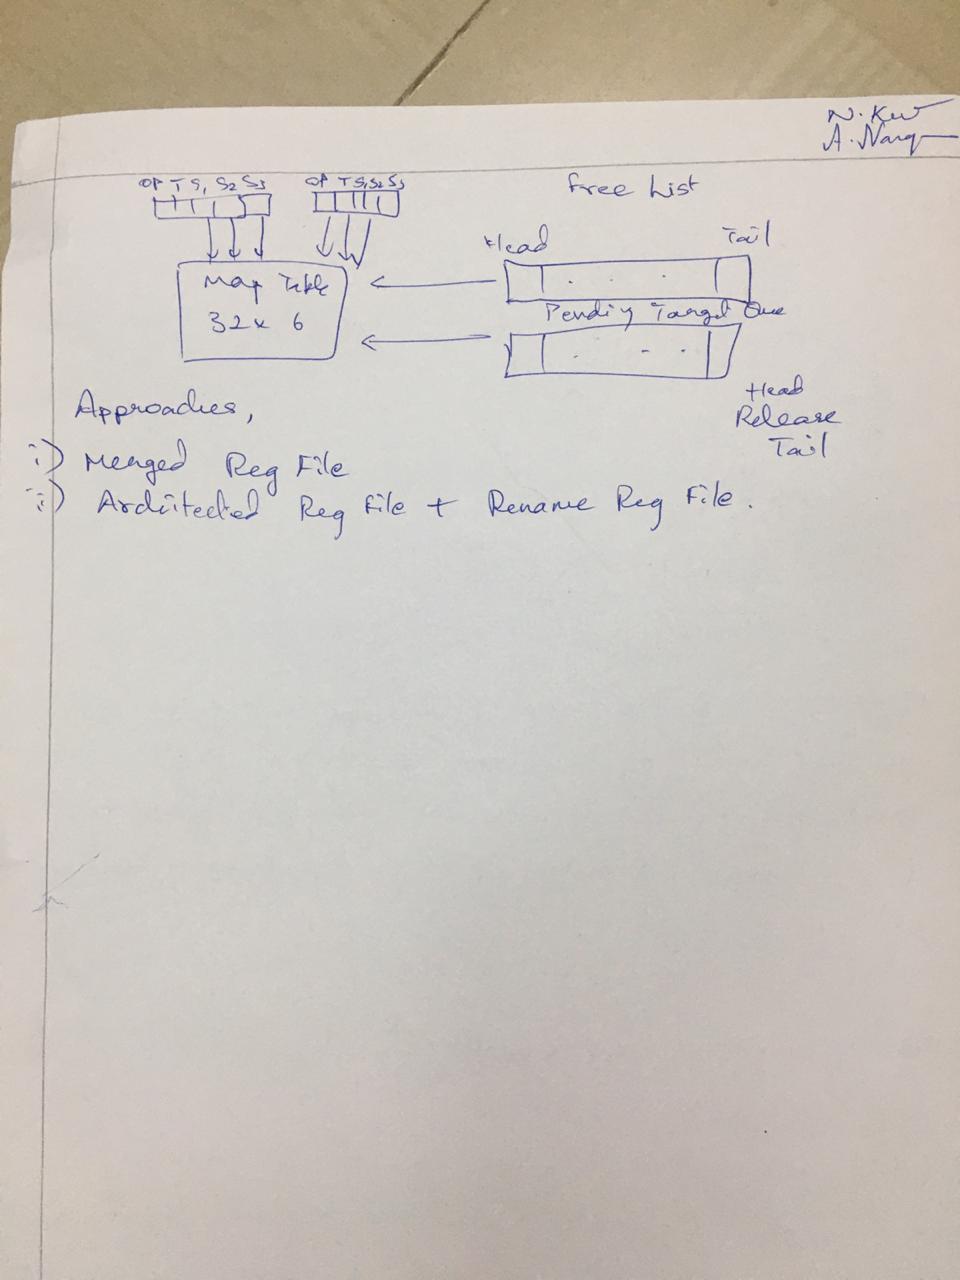 OP T S1 S2 S3
OP T S1 S2 S3
Free List
Head
Tail
Map Table
32 x 6
Pending Target Que
Head
Release
Tail
Approaches,
i) Merged Reg File
ii) Architected Reg File + Rename Reg File.